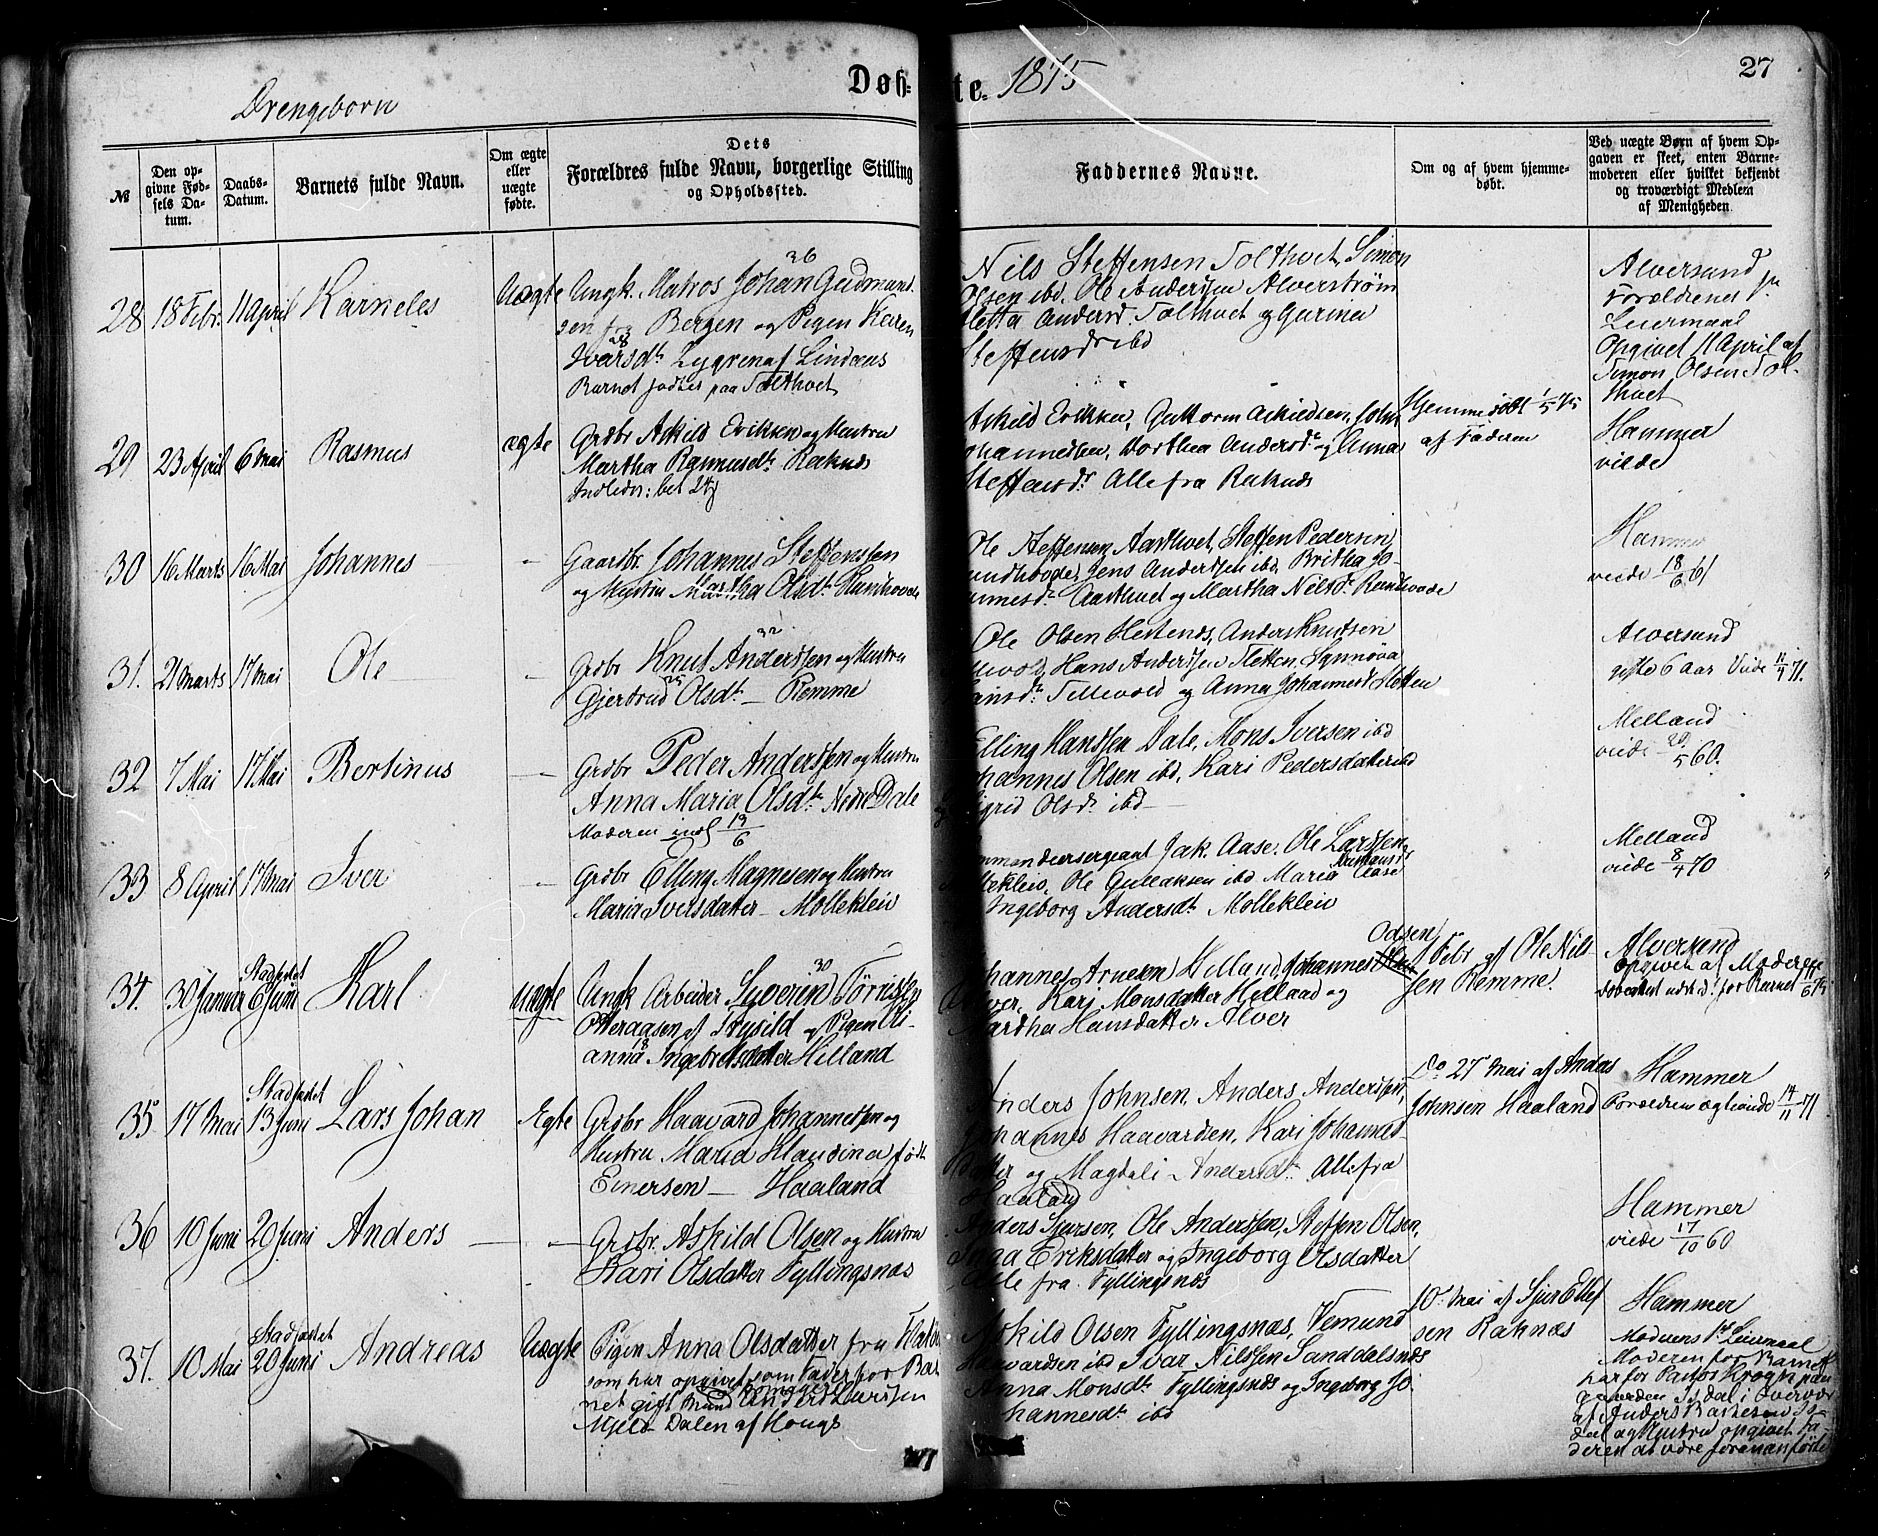 Drengebørn
Døb-
te. 1875
27
№
Den op-
givne Fød-
sels Da-
tum.
Daabs-
Datum.
Barnets fulde Navn.
Om ægte
eller
uægte
fødte.
Dets
Forældres fulde Navn, borgerlige Stilling
og Opholdssted.
Faddernes Navne.
Om og af hvem hjemme-
døbt.
Ved uægte Børn af hvem Op-
gaven er skeet, enten Barne-
moderen eller hvilket bekjendt
og troværdigt Medlem
af Menigheden.
28 18 Febr. 11 April Karneles Uægte
Ungk. Matros Johan Gudmund-
36
sen fra Bergen og Pigen Karen
28
Ivarsdt. Lygren af Lindaas
Barnet fødtes paa Tolthvet
Nils Steffensen Tolthvet, Simon
Olsen ibd. Ole Anderssen Alverstrøm
Andersd. Tolthvet og Gurina
Steffensdr ibd
Alversund
Forældrenes
Leiermaal
Opgivet 11 April af
Simon Olsen Tol-
thvet
29 23 April 6 Mai Rasmus ægte
Grdbr Askild Eriksen og Hustru
Martha Rasmusdt. Raknæs
Askild Eriksen, Guttorm Askildsen, John
Johannessen, Dorthea Andersdr og Anna
Steffensdr Alle fra Raknæs
Hjemmedøbt 1/5 75
af Faderen
Hammer
viede
30 16 Marts 16 Mai Johannes -
Gaardbr. Johannes Steffenssen
og Hustru Martha Olsdt. Hundhovde
Ole Steffensen Aasthvet, Steffen Pedersen
Hundhovde, Jens Anderssen ibd, Britha Jo-
hannesdr. Aasthvet og Martha Nilsdr. Hundhovde
Hammer
viede 18/6 61
31. 21 Marts 17 Mai Ole -
Grdbr Knut Anderssen og Hustru
32
Gjertrud Olsdt. - Remme
25
Ole Olsen Hestenes, Anders Knutsen
Hans Anderssen Fletten, Synnøva
Hansdr. Tellevold og Anna Johannesd. Fletten
Alversund
gifte 6 Aar Viede 11/4 71.
32 7 Mai 17 Mai Bertinus -
Grdbr Peder Anderssen og Hustru
Anna Maria Olsdt. Nedre Dale
Moderen indl 19/6
Elling Hanssen Dale, Mons Iversen ibd
Johannes Olsen ibd, Kari Pedersdatter ibd
og Sigrid Olsdr ibd -
Melland
viede 20/5 60.
33 8 April 17 Mai Iver -
Grdbr Elling Magnesen og Hustru
Maria Iversdatter - Mølleklein
Kommandeersergeant Jak. Aase. Ole Larssen
Mølleklein, Ole Gullaksen ibd Maria Aase
Ingeborg Andersdt. Mølleklein
Melland
viede 8/4 70
34. 30 Januar Stadfæstet
6 Juni Karl uægte
Ungk Arbeider Syverin Tørrissen
30
Otteraasen af Trysild og Pigen Oli-
anna Ingebretsdatter Hilland
18
Johannes Arnesen Hilland, Johannes Odsen
Alver, Kari Monsdatter Hilland og
Martha Hansdatter Alver
1 Febr af Ole Nils-
sen Remme.
Alversund
Opgivet af Moderen
35 17 Mai Stadfæstet
13 Juni Lars Johan Ægte
Grdbr Haavard Johannessen og
Hustru Maria Klaudina født
Einersen - Haaland
Anders Johnsen, Anders Anderssen,
Johannes Haavardsen, Kari Johannes-
datter og Magdali Andersdt. Alle fra
Haaland
Do 27 Mai af Anders
Johnsen Haaland
Hammer
Forældrene ægteviede 14/11 71
36 10 Juni 20 Juni Anders -
Grdbr. Askild Olsen og Hustru
Kari Olsdatter Fyllingsnæs
Anders Sjursen, Ole Anderssen, Steffen Olsen,
Inga Eriksdatter og Ingeborg Olsdatter
Alle fra Fyllingsnæs
Hammer
viede 17/10 60
37. 10 Mai Stadfæstet
20 Juni Andreas Uægte
Pigen Anna Olsdatter fra
som har opgivet som Fader for Bar-
net gift Mand Anders Laurssen
Mjeld-Dalen af Hougs
Askild Olsen Fyllingsnæs, Vemund
Haavardsen ibd Ivar Nilssen Sanddalsnæs
Anna Monsdt. Fyllingsnæs og Ingeborg Jo-
hannesdt. ibd
10. Mai af Sjur Ellef-
sen Raknæs
Hammer
Moderens 1st Leiermaal
Moderen for Barnet
har for Pastor Krogh paa
gaarden Isdal i Overvær
af Anders Is-
dal og Hustru opgivet Fa-
deren at være forananførte